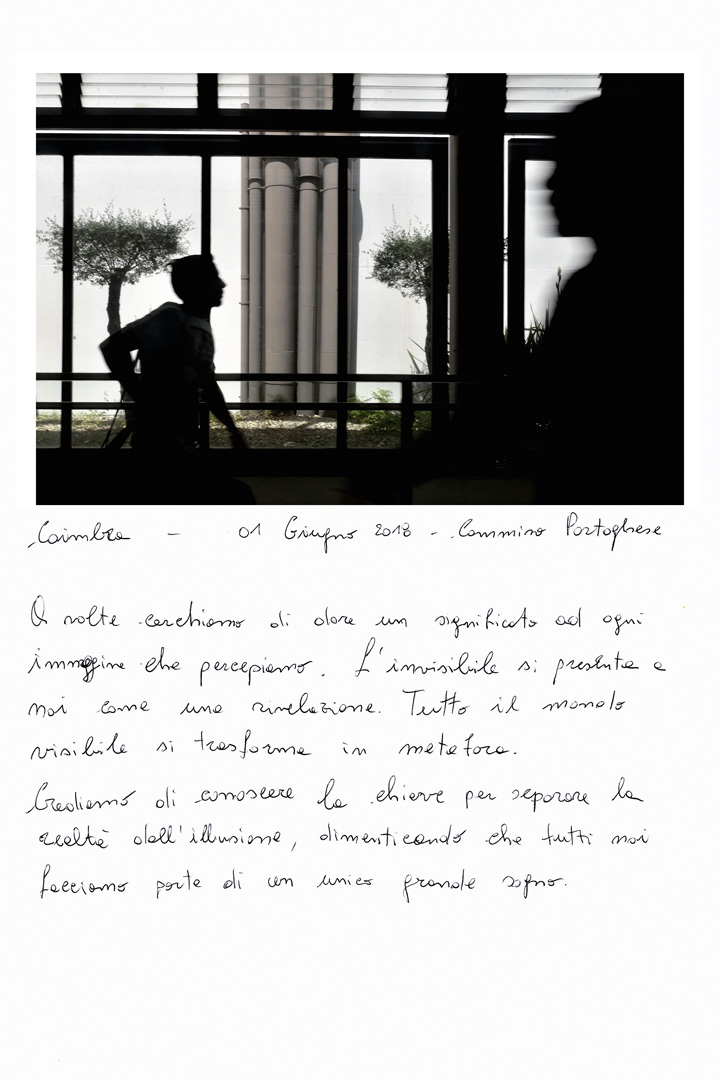 Coimbra - 01 Giugno 2018 - Cammino Portoghese
A volte cerchiamo di dare un significato ad ogni
immagine che percepiamo. L'invisibile si presenta a
noi come una rivelazione. Tutto il mondo
visibile si trasforma in metafora.
Crediamo di conoscere la chiave per separare la
realtà dall'illusione, dimenticando che tutti noi
facciamo parte di un unico grande sogno.